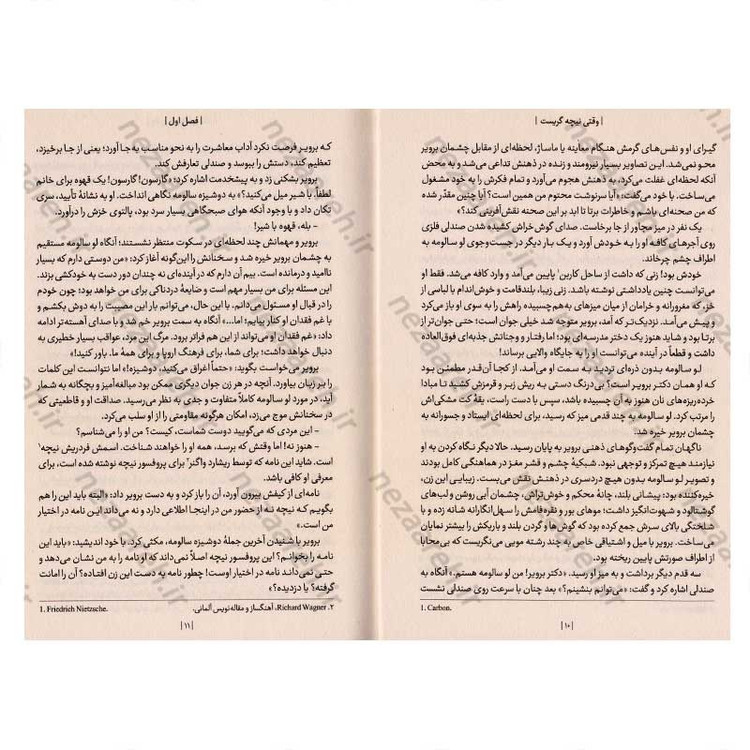 | وقتی نیچه گریست |
گیرای او و نفس‌های گرمش هنگام معاینه یا ماساژ، لحظه‌ای از مقابل چشمان برویر
محو نمی‌شد. این تصاویر بسیار نیرومند و زنده در ذهنش تداعی می‌شد و به محض
آنکه لحظه‌ای غفلت می‌کرد، به ذهنش هجوم می‌آورد و تمام فکرش را به خود مشغول
می‌ساخت. با خود می‌گفت: «آیا سرنوشت محتوم من همین است؟ آیا چنین مقدّر شده
که من صحنه‌ای باشم و خاطرات برتا تا ابد بر این صحنه نقش‌آفرینی کند؟»
یک نفر در میز مجاور از جا برخاست. صدای گوش‌خراش کشیده شدن صندلی فلزی
روی آجرهای کافه او را به خودش آورد و یک بار دیگر در جست‌وجوی لو سالومه به
اطراف چشم چرخاند.
خودش بود! زنی که داشت از ساحل کاربن¹ پایین می‌آمد و وارد کافه می‌شد. فقط او
می‌توانست چنین یادداشتی نوشته باشد. زنی زیبا، بلندقامت و خوش‌اندام با لباسی از
خز، که مغرورانه و خرامان از میان میزهای به‌هم‌چسبیده راهش را به سوی او باز می‌کرد
و پیش می‌آمد. نزدیک‌تر که آمد، برویر متوجه شد خیلی جوان است؛ حتی جوان‌تر از
برتا بود و شاید هنوز یک دختر مدرسه‌ای بود؛ اما رفتار و وجناتش جذبه‌ای فوق‌العاده
داشت و قطعاً در آینده می‌توانست او را به جایگاه والایی برساند!
لو سالومه بدون ذره‌ای تردید به سمت او می‌آمد. از کجا آن‌قدر مطمئن بود
که او همان دکتر برویر است؟ بی‌درنگ دستی به ریش زبر و قرمزش کشید تا مبادا
خرده‌ریزه‌های نان هنوز به آن چسبیده باشد، سپس با دست راست، یقهٔ کت مشکی‌اش
را مرتب کرد. لو سالومه به چند قدمی میز که رسید، برای لحظه‌ای ایستاد و جسورانه به
چشمان برویر خیره شد.
ناگهان تمام گفت‌وگوهای ذهنی برویر به پایان رسید. حالا دیگر نگاه کردن به او
نیازمند هیچ تمرکز و توجهی نبود. شبکیهٔ چشم و قشر مغز در هماهنگی کامل بودند
و تصویر لو سالومه بدون هیچ دردسری در ذهنش نقش می‌بست. زیبایی این زن،
خیره‌کننده بود؛ پیشانی بلند، چانهٔ محکم و خوش‌تراش، چشمان آبی روشن و لب‌های
گوشتالود و شهوت‌انگیز داشت؛ موهای بور و نقره‌فامش را سهل‌انگارانه شانه زده و با
شلختگی بالای سرش جمع کرده بود که گوش‌ها و گردن بلند و باریکش را بیشتر نمایان
می‌ساخت. برویر با میل و اشتیاقی خاص به چند رشته مویی می‌نگریست که بی‌محابا
از اطراف صورتش پایین ریخته بود.
سه قدم دیگر برداشت و به میز او رسید. «دکتر برویر! من لو سالومه هستم.» آنگاه به
صندلی اشاره کرد و گفت: «می‌توانم بنشینم؟» بعد چنان با سرعت روی صندلی نشست
1. Carbon.
|۱۰|
| فصل اول |
که برویر فرصت نکرد آداب معاشرت را به نحو مناسب به جا آورد؛ یعنی از جا برخیزد،
تعظیم کند، دستش را ببوسد و صندلی تعارفش کند.
برویر بشکنی زد و به پیشخدمت اشاره کرد: «گارسون! گارسون! یک قهوه برای خانم
لطفاً. با شیر میل می‌کنید؟» به دوشیزه سالومه نگاهی انداخت. او به نشانهٔ تأیید، سری
تکان داد و با وجود آنکه هوای صبحگاهی بسیار سرد بود، پالتوی خزش را درآورد.
- بله، قهوه با شیر!
برویر و مهمانش چند لحظه‌ای در سکوت منتظر نشستند؛ آنگاه لو سالومه مستقیم
به چشمان برویر خیره شد و سخنانش را این‌گونه آغاز کرد: «من دوستی دارم که بسیار
ناامید و درمانده است. بیم آن دارم که در آینده‌ای نه چندان دور دست به خودکشی بزند.
این مسئله برای من بسیار مهم است و ضایعهٔ دردناکی برای من خواهد بود؛ چون خودم
را در قبال او مسئول می‌دانم. با این حال، می‌توانم بار این مصیبت را به دوش بکشم و
با غم فقدان او کنار بیایم؛ اما...» آنگاه به سمت برویر خم شد و با صدای آهسته‌تر ادامه
داد: «غم فقدان او می‌تواند از این هم فراتر برود. مرگ این مرد، عواقب بسیار خطیری به
دنبال خواهد داشت؛ برای شما، برای فرهنگ اروپا و برای همهٔ ما. باور کنید!»
برویر می‌خواست بگوید: «حتماً اغراق می‌کنید، دوشیزه!» اما نتوانست این کلمات
را بر زبان بیاورد. آنچه در هر زن جوان دیگری ممکن بود مبالغه‌آمیز و بچگانه به شمار
آید، در مورد لو سالومه کاملاً متفاوت و جدی به نظر می‌رسید. صداقت او و قاطعیتی که
در سخنانش موج می‌زد، امکان هرگونه مقاومتی را از او سلب می‌کرد.
- این مردی که می‌گویید دوست شماست، کیست؟ من او را می‌شناسم؟
- هنوز نه! اما وقتش که برسد، همه او را خواهند شناخت. اسمش فردریش نیچه¹
است. شاید این نامه که توسط ریشارد واگنر² برای پروفسور نیچه نوشته شده است، برای
معرفی او کافی باشد.
نامه‌ای از کیفش بیرون آورد، آن را باز کرد و به دست برویر داد: «البته باید این را هم
بگویم که نیچه نه از حضور من در اینجا اطلاعی دارد و نه می‌داند این نامه در اختیار
من است.»
برویر با شنیدن آخرین جملهٔ دوشیزه سالومه، مکثی کرد. با خود اندیشید: «باید این
نامه را بخوانم؟ این پروفسور نیچه اصلاً نمی‌داند که او نامه را به من نشان می‌دهد و
حتی نمی‌داند نامه در اختیار اوست! چطور نامه به دست این زن افتاده؟ آن را امانت
گرفته؟ یا دزدیده؟»
1. Friedrich Nietzsche.
۲. Richard Wagner، آهنگساز و مقاله‌نویس آلمانی.
|۱۱|
nezaareh.ir